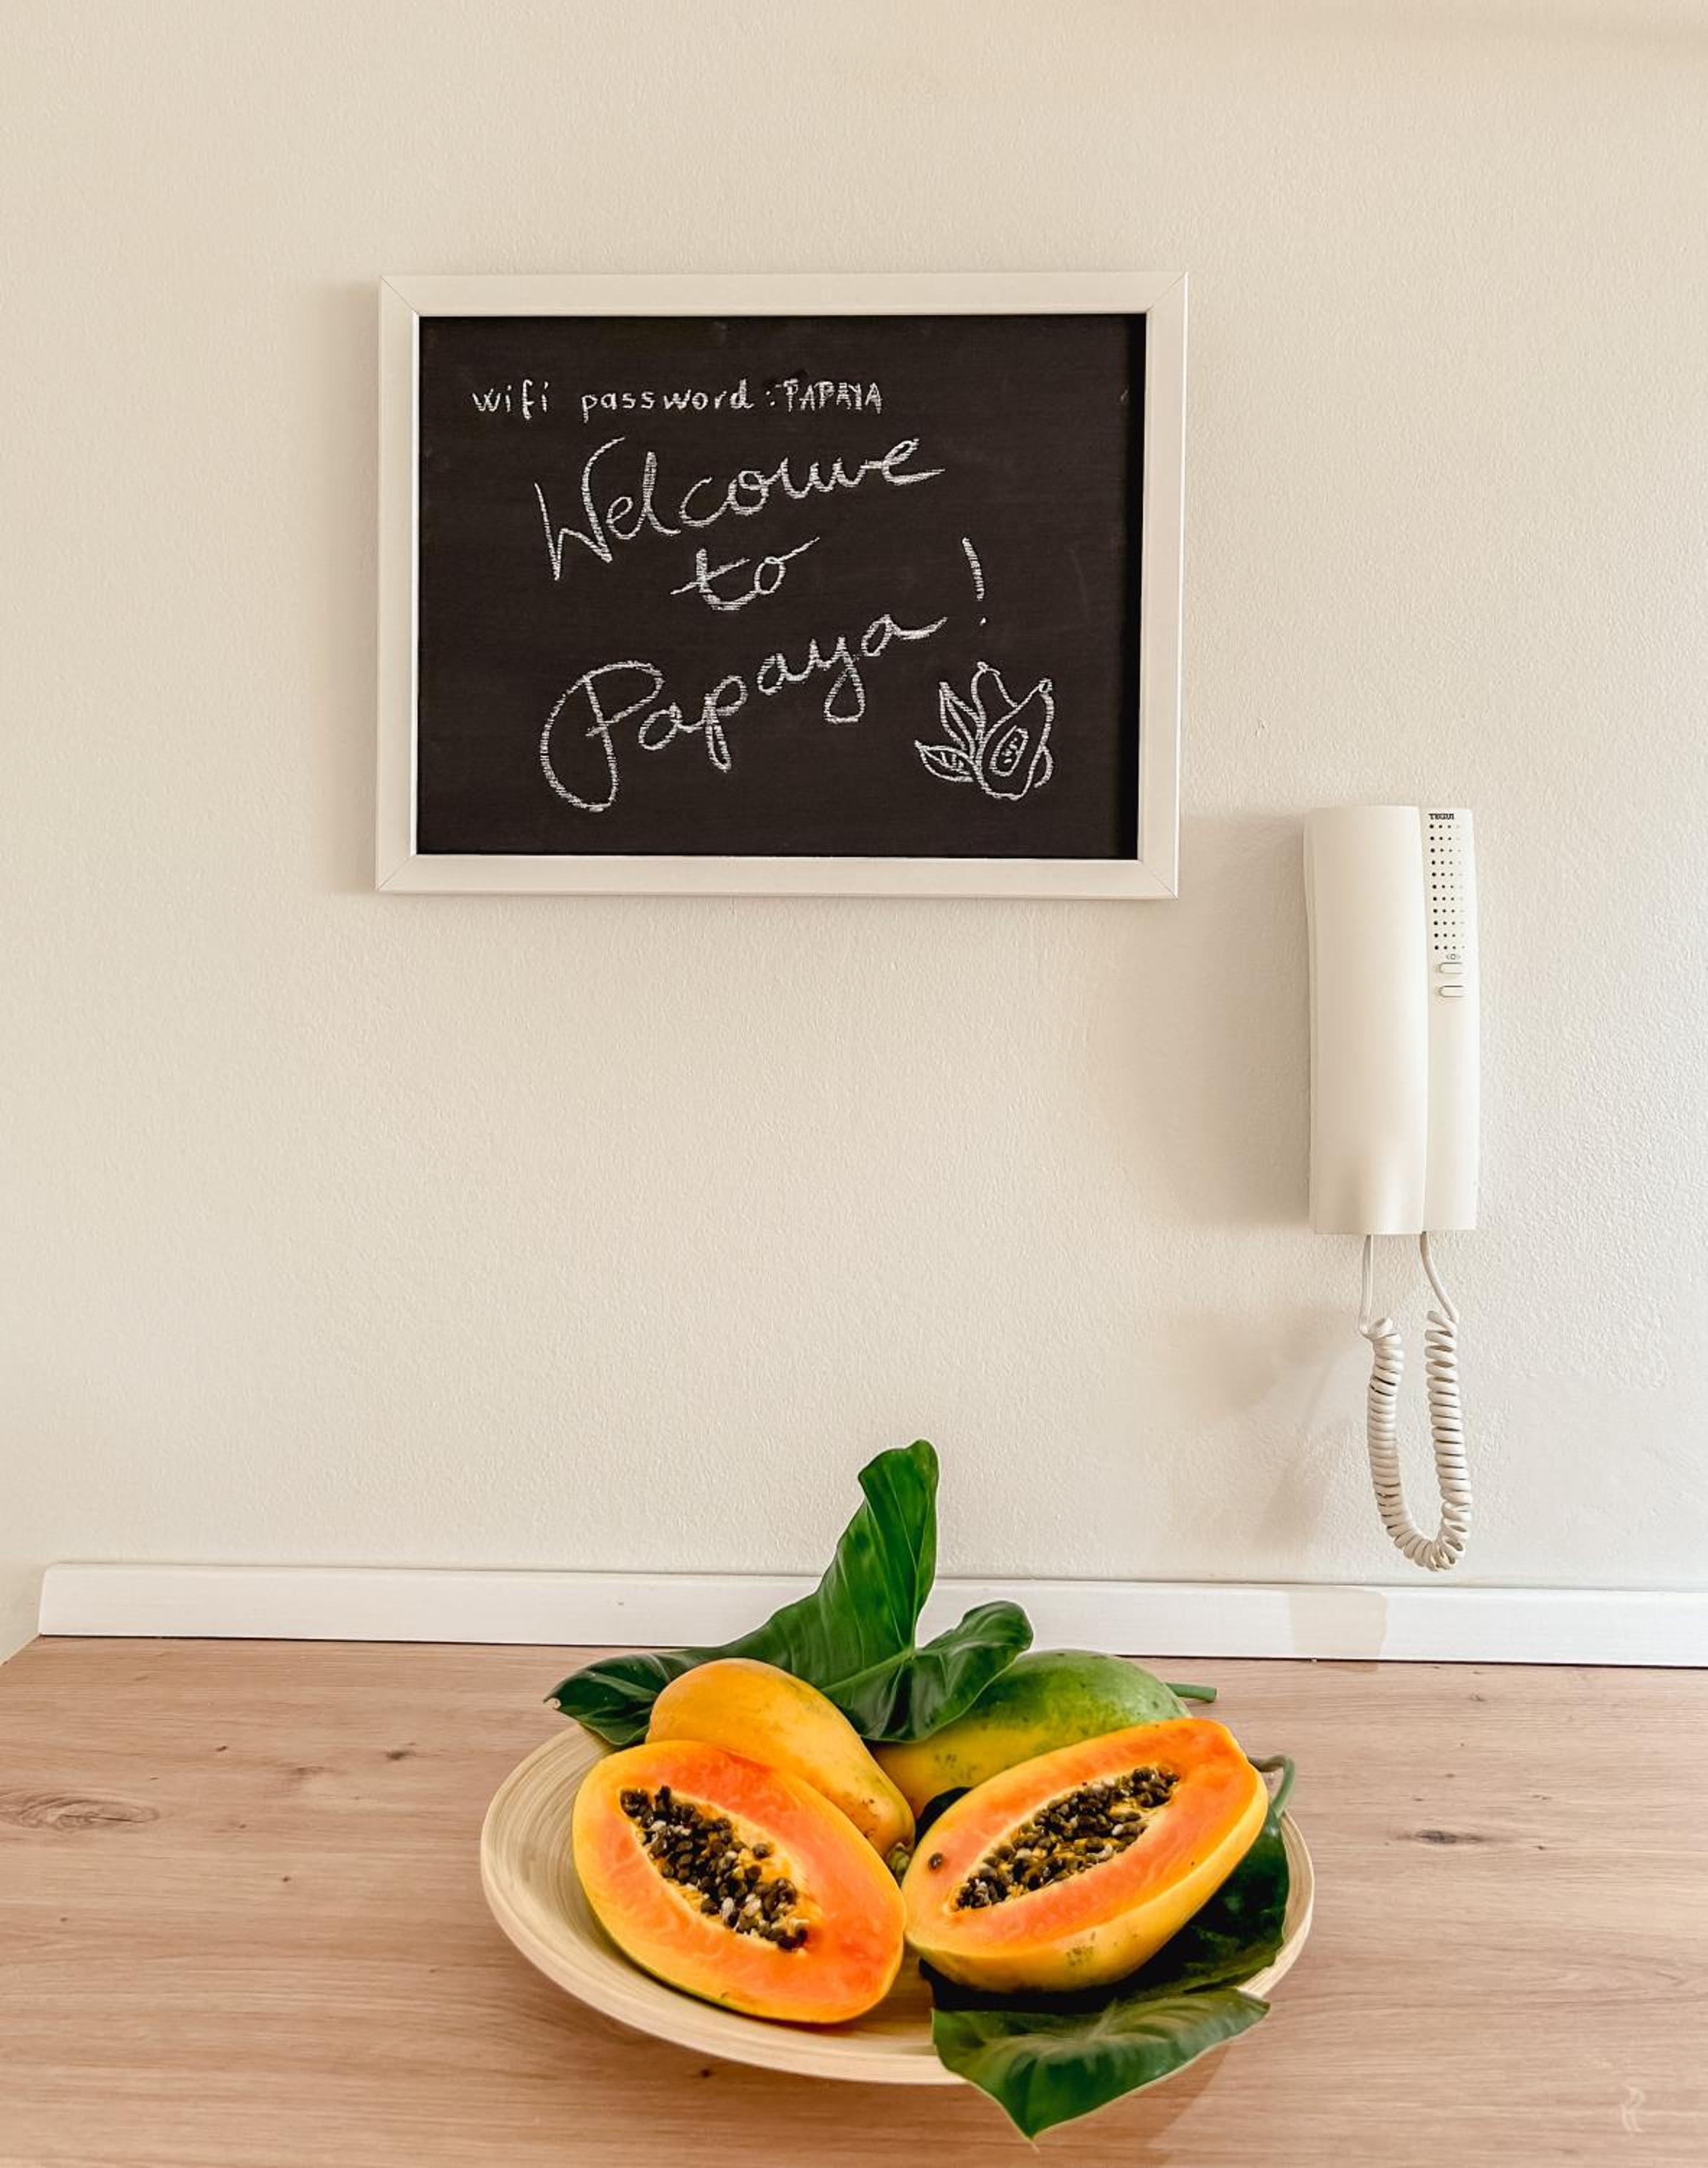 wifi password: PAPAYA
Welcome
to
Papaya!
TEGUI